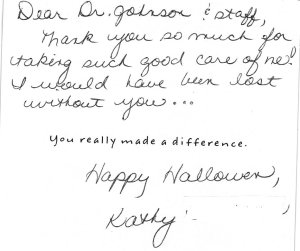 Dear Dr. Johnson & staff,
Thank you so much for
taking such good care of me!
I would have been lost
without you...
You really made a difference.
Happy Hallowen,
Kathy